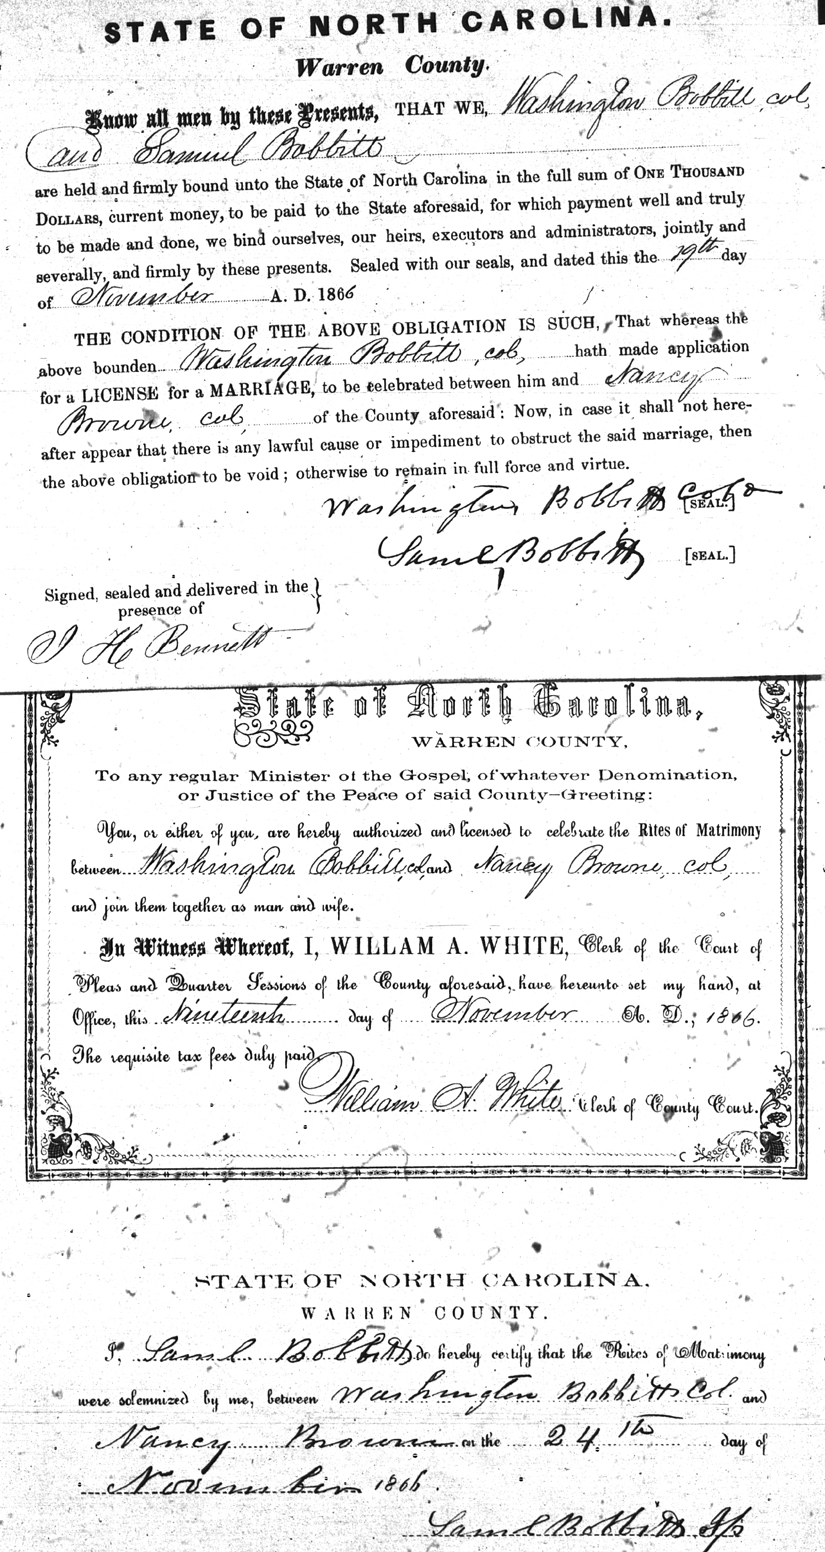 STATE OF NORTH CAROLINA.
Warren County.
Know all men by these Presents, THAT WE, Washington Bobbitt, col,
and Samuel Bobbitt
are held and firmly bound unto the State of North Carolina in the full sum of ONE THOUSAND
DOLLARS, current money, to be paid to the State aforesaid, for which payment well and truly
to be made and done, we bind ourselves, our heirs, executors and administrators, jointly and
severally, and firmly by these presents. Sealed with our seals, and dated this the 19th day
of November A. D. 1866
THE CONDITION OF THE ABOVE OBLIGATION IS SUCH, That whereas the
above bounden Washington Bobbitt, col, hath made application
for a LICENSE for a MARRIAGE, to be celebrated between him and Nancy
Browne, col, of the County aforesaid: Now, in case it shall not here-
after appear that there is any lawful cause or impediment to obstruct the said marriage, then
the above obligation to be void; otherwise to remain in full force and virtue.
Washington Bobbitt Cold [SEAL.]
Saml Bobbitt [SEAL.]
Signed, sealed and delivered in the
presence of
J H Bennett
State of North Carolina,
WARREN COUNTY,
To any regular Minister of the Gospel, of whatever Denomination,
or Justice of the Peace of said County—Greeting:
You, or either of you, are hereby authorized and licensed to celebrate the Rites of Matrimony
between Washington Bobbitt, col, and Nancy Browne, col,
and join them together as man and wife.
In Witness Whereof, I, WILLAM A. WHITE, Clerk of the Court of
Pleas and Quarter Sessions of the County aforesaid, have hereunto set my hand, at
Office, this Nineteenth day of November A. D., 1866.
The requisite tax fees duly paid.
William A. White Clerk of County Court.
STATE OF NORTH CAROLINA.
WARREN COUNTY.
I, Saml Bobbitt do hereby certify that the Rites of Matrimony
were solemnized by me, between Washington Bobbitt Col. and
Nancy Brown on the 24th day of
November 1866.
Saml Bobbitt Jp